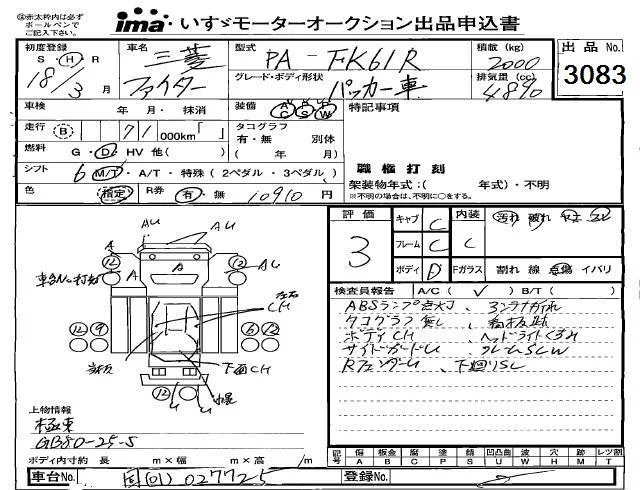 ※赤太枠内は必ず
ボールペンで
ご記入下さい。
ima いすゞモーターオークション出品申込書
初度登録 車名 型式 積載(kg) 出品No.
S・H・R 三菱 PA-FK61R 2000 3083
18/3 月 ファイター グレード・ボディ形状 パッカー車 排気量(cc) 4890
車検 年・月・抹消 装備 AC PS PW 特記事項
走行 B 71 000km「 」 タコグラフ
有・無 別体
燃料 G・D・HV 他( ) ( 年 月)
シフト 6 M/T・A/T・特殊(2ペダル・3ペダル) 職権打刻
架装物年式:( 年式)・不明
※不明の場合は、不明に○をする。
色 指定 R券 有・無 10910 円
評価 3 キャブ C 内装 汚れ 破れ
フレーム C C
ボディ D Fガラス 割れ 線 点傷 イバリ
検査員報告 A/C( ✓ ) B/T( )
ABSランプ点灯、
タコグラフ無し、
ボディCH ヘッドライトくすみ
サイドガードU フレームSCW
RフェンダーU、下廻りSC
AU AU
A
12 A A A 12 AU
車台No打刻
左右
CH
12 9 6 12
下面CH
12 U U
上物情報
極東
GB80-25-S
ボディ内寸約 長 m×幅 m×高 m/
記号 傷 A 板金 B 腐 C 塗 P 錆 S 凹凸曲 U 波 W 穴 H 跡 M レツ割 T
車台No. 国[01]027725 登録No.